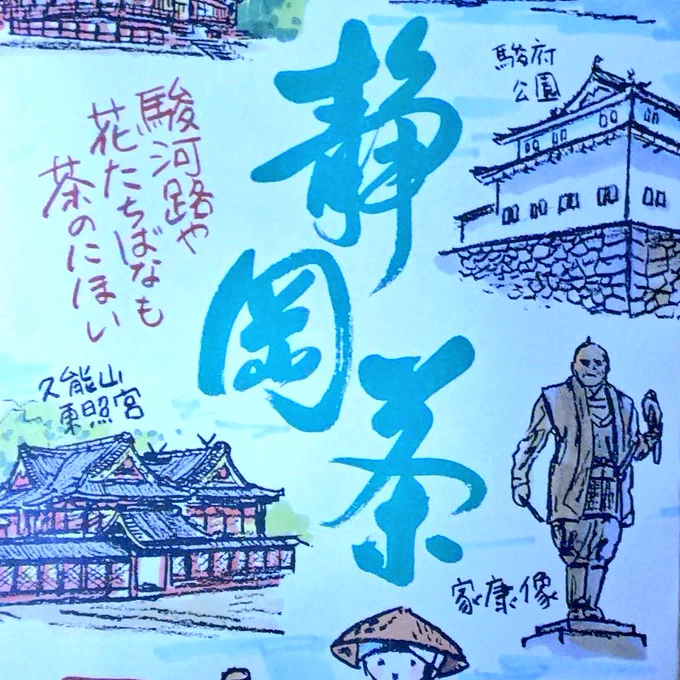 静岡茶
駿府
公園
駿河路や
花たちばなも
茶のにほい
久能山
東照宮
家康像